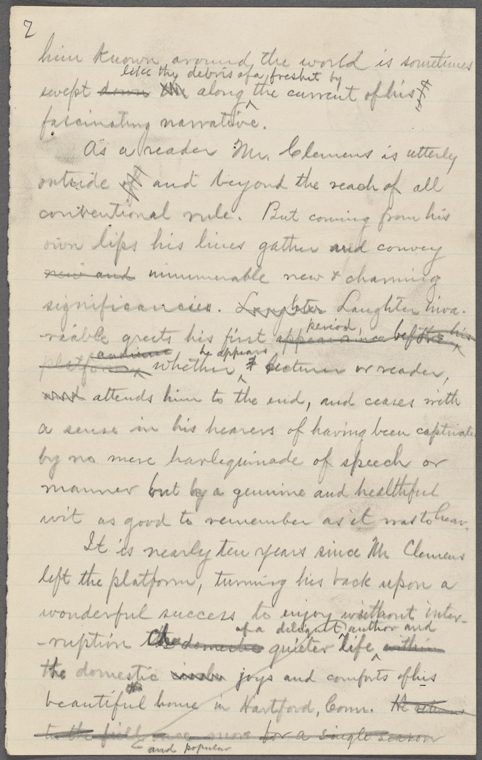 2
him known around the world is sometimes
like the debris of a freshet by
swept down along the current of his
fascinating narrative.
As a reader Mr. Clemens is utterly
outside and beyond the reach of all
conventional rule. But coming from his
own lips his lines gather and convey
new and innumerable new & charming
significancies. Laughter Laughter inva-
riable greets his first appearance before his
period,
platform whether lecturer or reader,
audience he appears
and attends him to the end, and ceases with
a sense in his hearers of having been captivated
by no mere harlequinade of speech or
manner but by a genuine and healthful
wit as good to remember as it was to hear.
It is nearly ten years since Mr Clemens
left the platform, turning his back upon a
wonderful success to enjoy without inter-
of a diligent author and
-ruption the domestic quieter life within
the domestic joys and comforts of his
beautiful home in Hartford, Conn. He returns
to the field once more for a single season
and popular